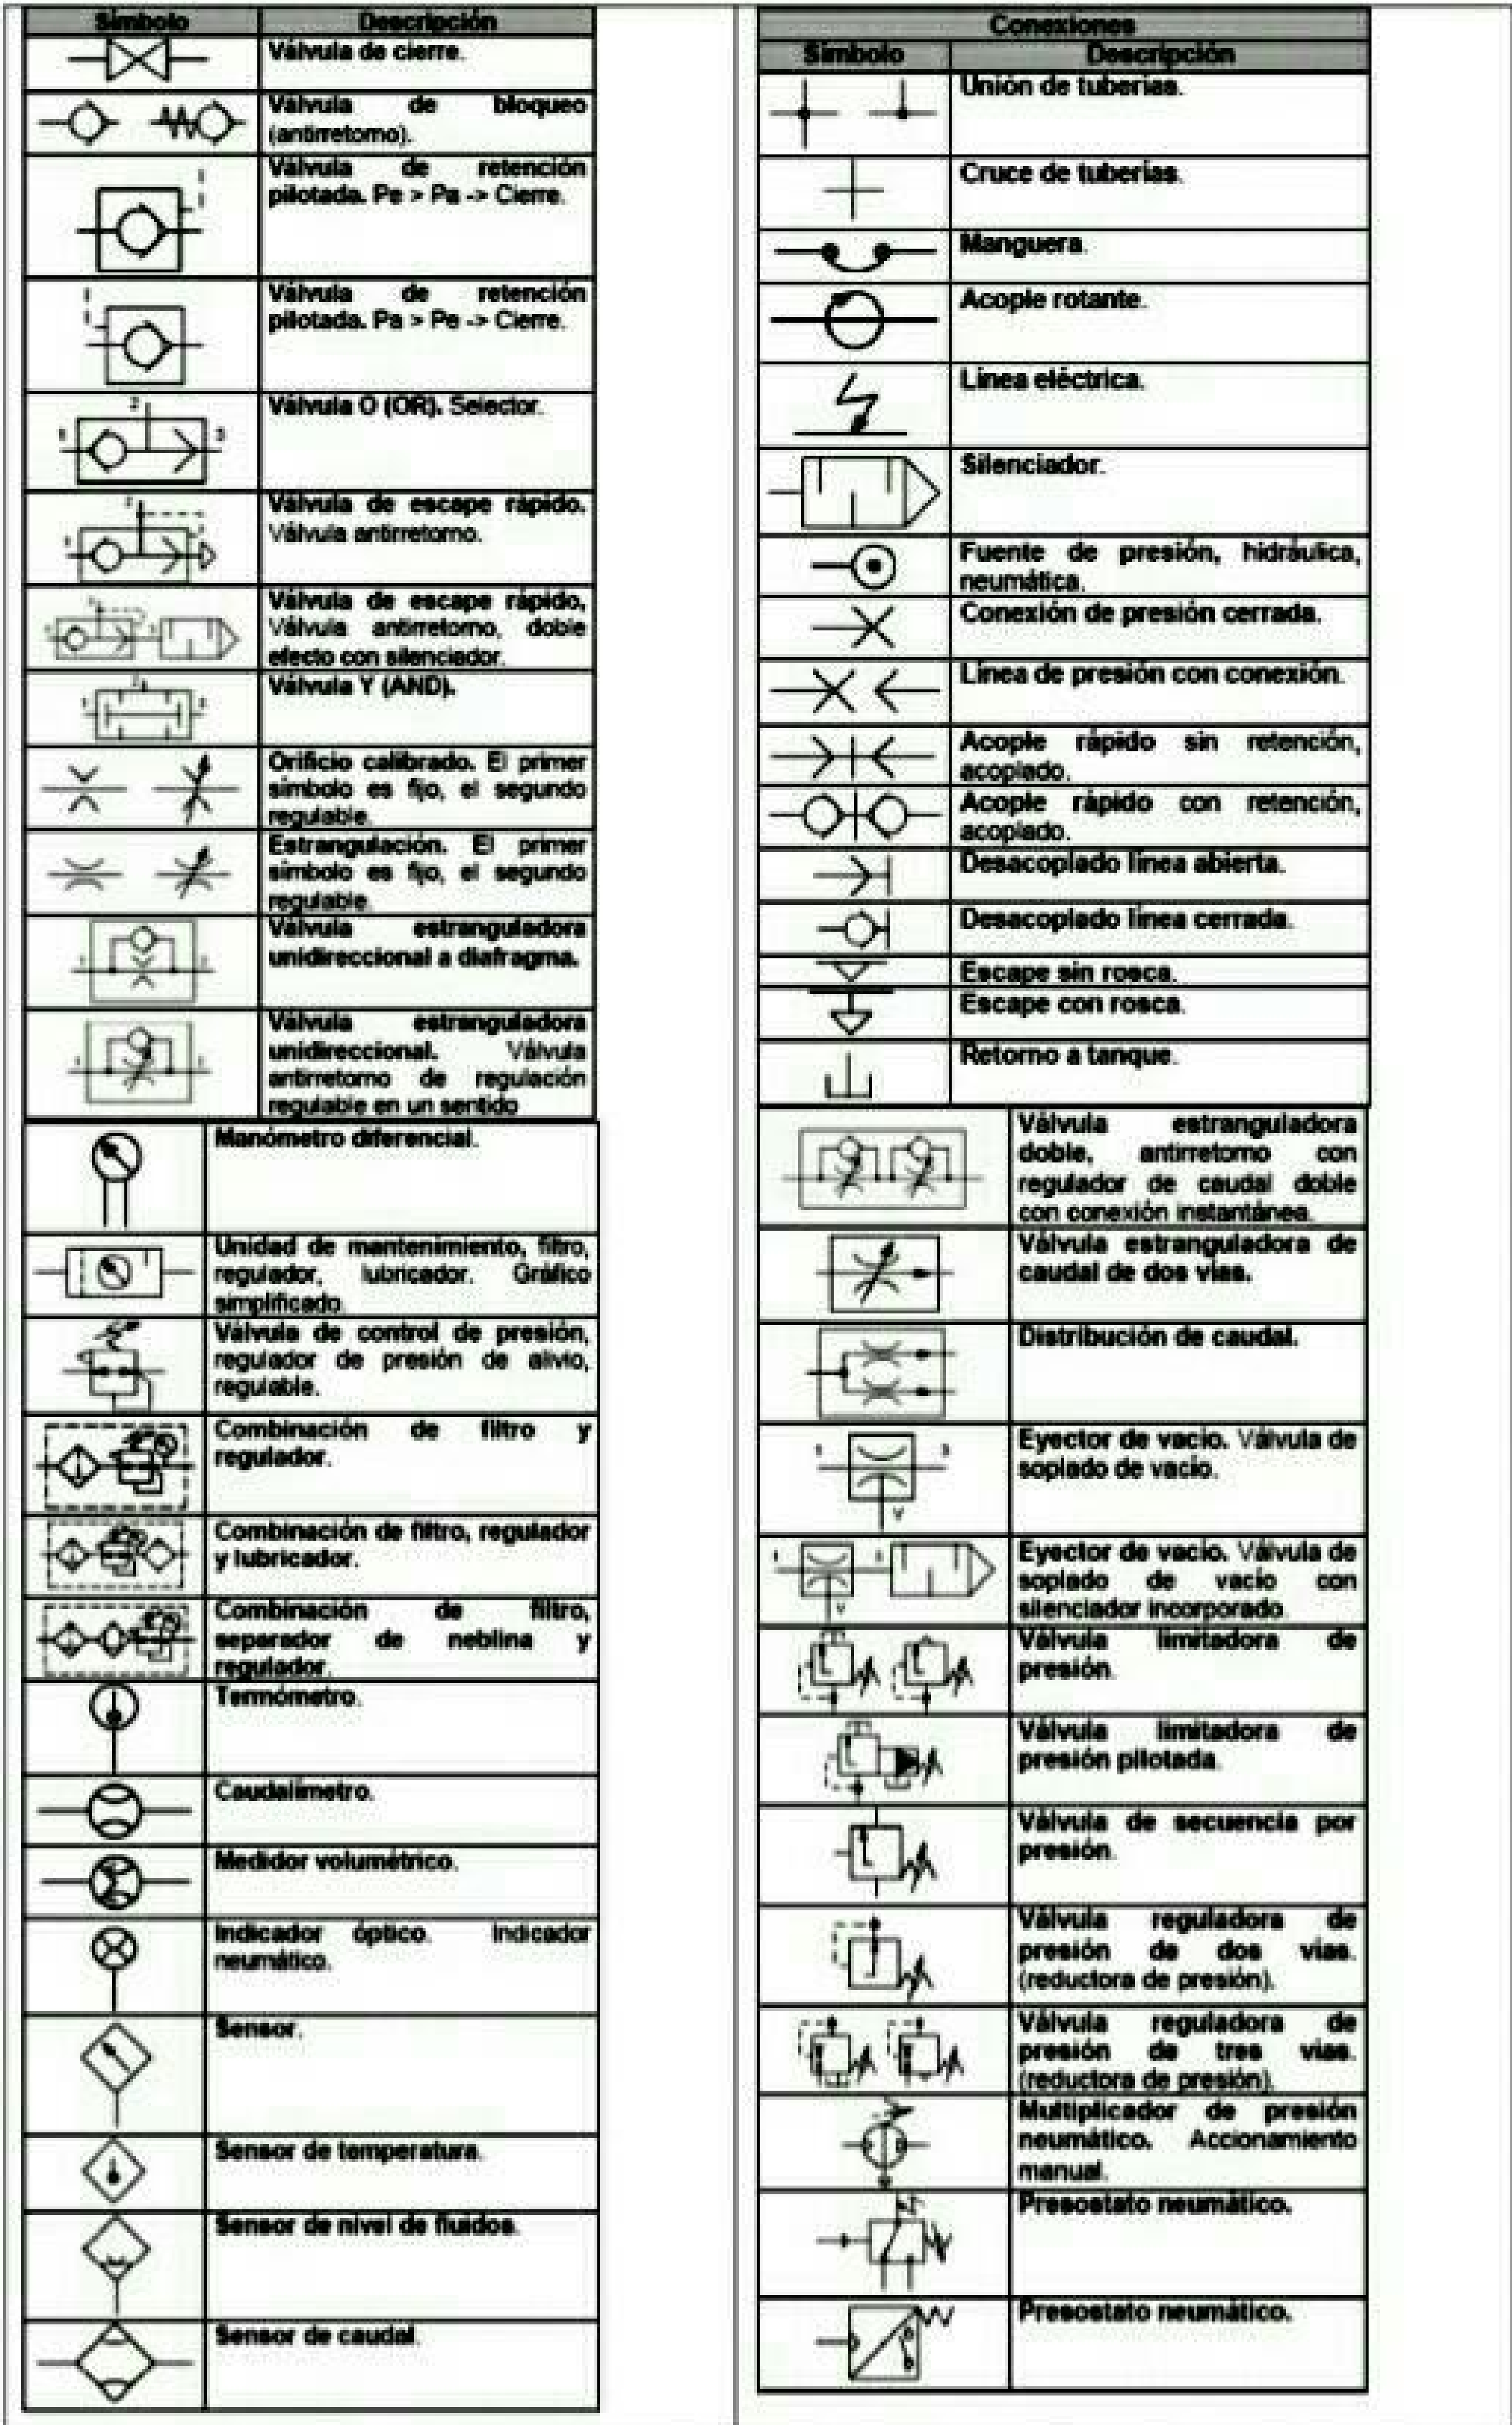 Símbolo Descripción
Válvula de cierre.
Válvula de bloqueo
(antirretorno).
Válvula de retención
pilotada. Pe > Pa -> Cierre.
Válvula de retención
pilotada. Pa > Pe -> Cierre.
Válvula O (OR). Selector.
Válvula de escape rápido.
Válvula antirretorno.
Válvula de escape rápido,
Válvula antirretorno, doble
efecto con silenciador.
Válvula Y (AND).
Orificio calibrado. El primer
símbolo es fijo, el segundo
regulable.
Estrangulación. El primer
símbolo es fijo, el segundo
regulable.
Válvula estranguladora
unidireccional a diafragma.
Válvula estranguladora
unidireccional. Válvula
antirretorno de regulación
regulable en un sentido
Manómetro diferencial.
Unidad de mantenimiento, filtro,
regulador, lubricador. Gráfico
simplificado.
Válvula de control de presión,
regulador de presión de alivio,
regulable.
Combinación de filtro y
regulador.
Combinación de filtro, regulador
y lubricador.
Combinación de filtro,
separador de neblina y
regulador.
Termómetro.
Caudalímetro.
Medidor volumétrico.
Indicador óptico. Indicador
neumático.
Sensor.
Sensor de temperatura.
Sensor de nivel de fluidos.
Sensor de caudal.
Conexiones
Símbolo Descripción
Unión de tuberías.
Cruce de tuberías.
Manguera.
Acople rotante.
Línea eléctrica.
Silenciador.
Fuente de presión, hidráulica,
neumática.
Conexión de presión cerrada.
Línea de presión con conexión.
Acople rápido sin retención,
acoplado.
Acople rápido con retención,
acoplado.
Desacoplado línea abierta.
Desacoplado línea cerrada.
Escape sin rosca.
Escape con rosca.
Retorno a tanque.
Válvula estranguladora
doble, antirretorno con
regulador de caudal doble
con conexión instantánea.
Válvula estranguladora de
caudal de dos vías.
Distribución de caudal.
Eyector de vacío. Válvula de
soplado de vacío.
Eyector de vacío. Válvula de
soplado de vacío con
silenciador incorporado.
Válvula limitadora de
presión.
Válvula limitadora de
presión pilotada.
Válvula de secuencia por
presión.
Válvula reguladora de
presión de dos vías.
(reductora de presión).
Válvula reguladora de
presión de tres vías.
(reductora de presión).
Multiplicador de presión
neumático. Accionamiento
manual.
Presostato neumático.
Presostato neumático.